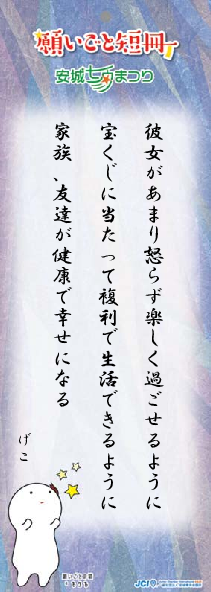 願いごと短冊
安城七夕まつり
彼女があまり怒らず楽しく過ごせるように
宝くじに当たって複利で生活できるように
家族、友達が健康で幸せになる
げこ
願いごと短冊
JCI